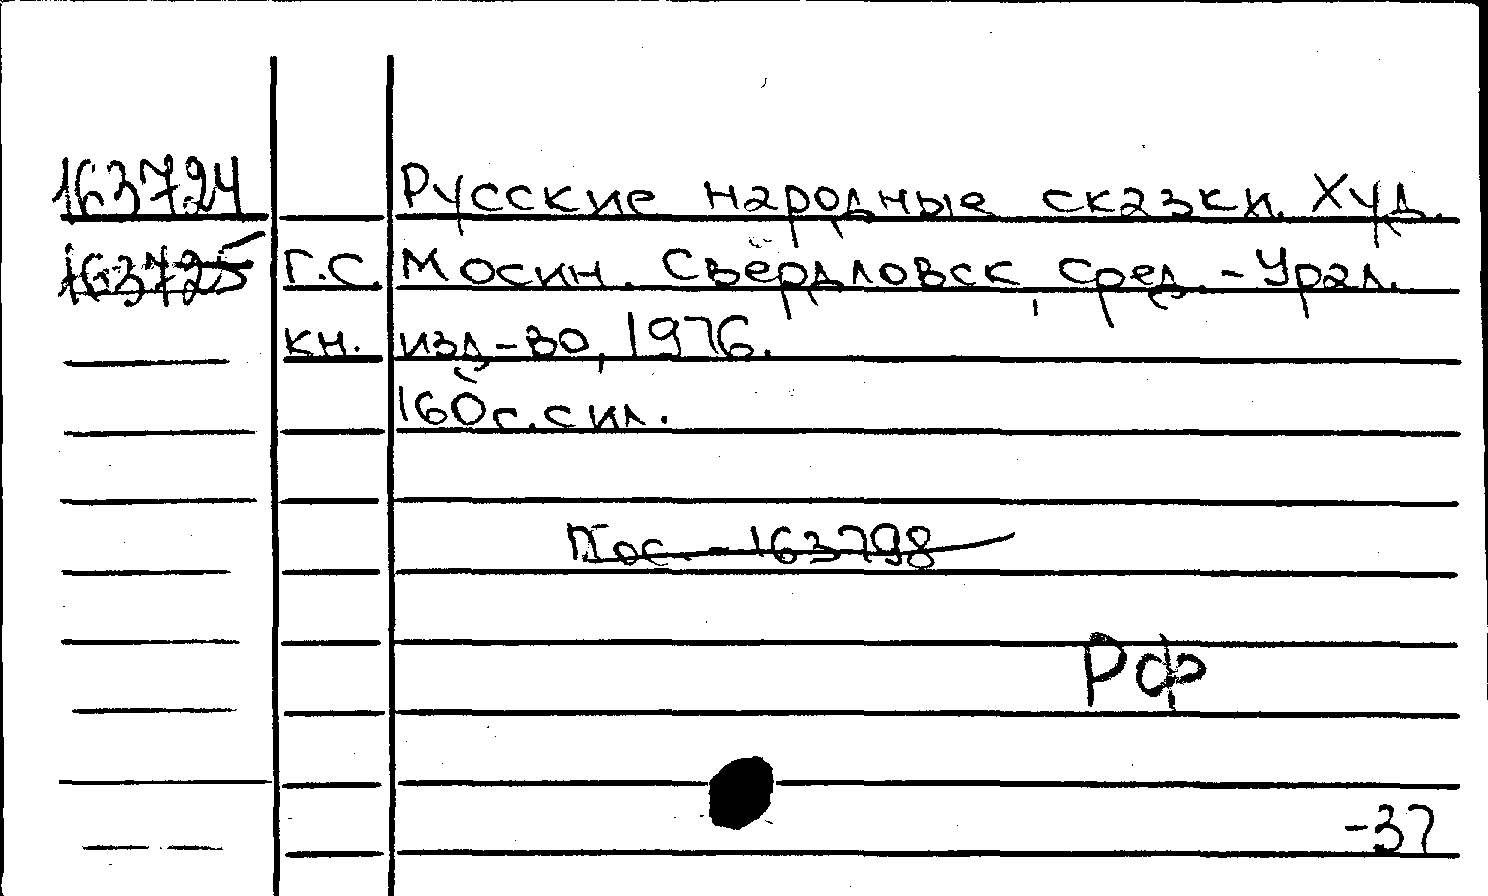 163724 Русские народные сказки. Худ.
163725 Г.С. Мосин. Свердловск, Сред.-Урал.
кн. изд-во, 1976.
160с. с ил.
Пос. - 163798
РФ
-37